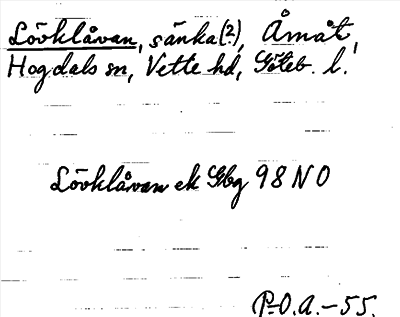 Lövklåvan, sänka(?), Åmåt,
Hogdals sn, Vette hd, Göteb. l.
Lövklåvan ek Gbg 98 NO
P-O.A.-55.